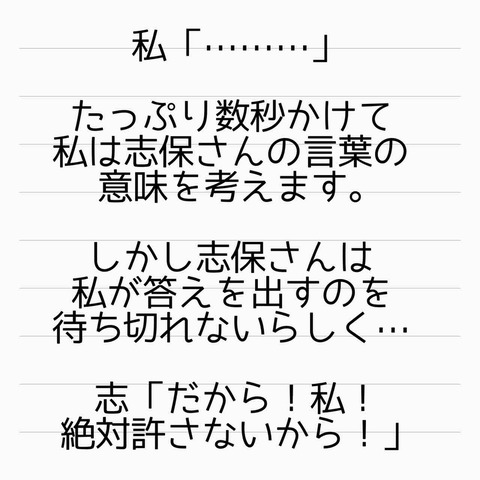 私「………」
たっぷり数秒かけて
私は志保さんの言葉の
意味を考えます。
しかし志保さんは
私が答えを出すのを
待ち切れないらしく…
志「だから！私！
絶対許さないから！」